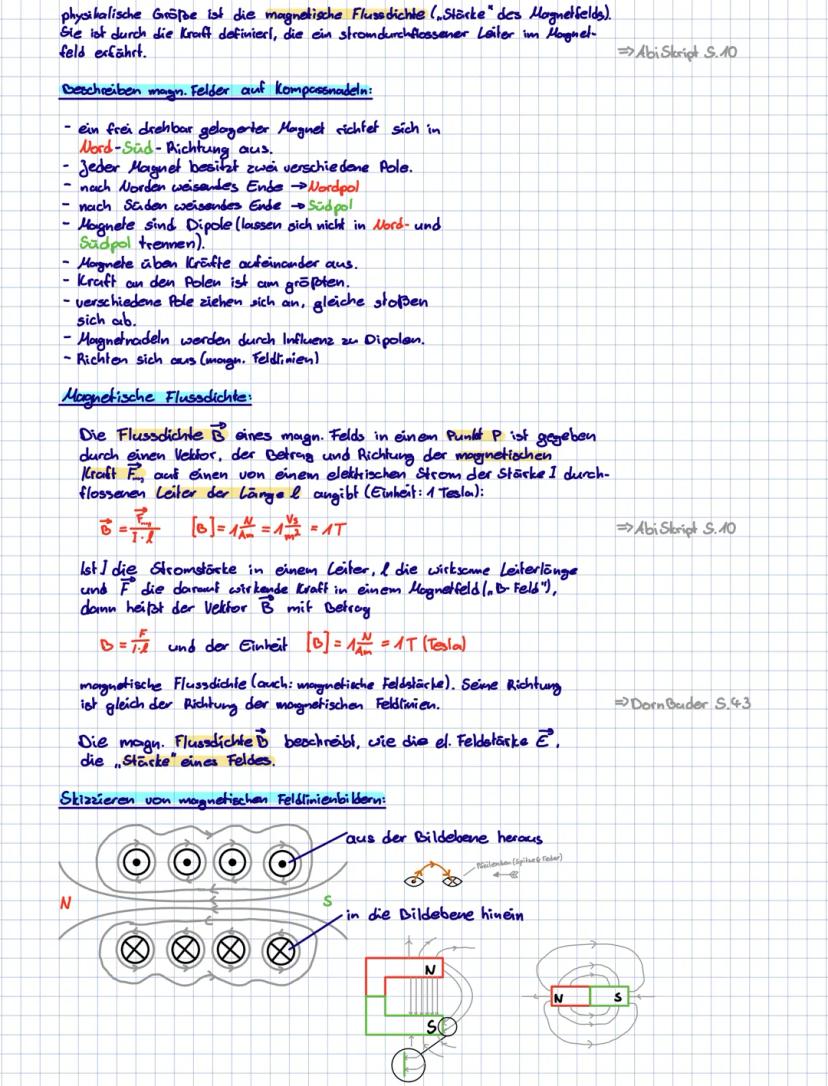 physikalische Größe ist die magnetische Flussdichte („Stärke" des Magnetfelds).
Sie ist durch die Kraft definiert, die ein stromdurchflossener Leiter im Magnet-
feld erfährt.
⇒AbiSkript S.10
Beschreiben magn. Felder auf Kompassnadeln:
- ein frei drehbar gelagerter Magnet richtet sich in
Nord-Süd-Richtung aus.
- Jeder Magnet besitzt zwei verschiedene Pole.
- nach Norden weisendes Ende →Nordpol
- nach Süden weisendes Ende →Südpol
- Magnete sind Dipole (lassen sich nicht in Nord- und
Südpol trennen).
- Magnete üben Kräfte aufeinander aus.
- Kraft an den Polen ist am größten.
- verschiedene Pole ziehen sich an, gleiche stoßen
sich ab.
- Magnetnadeln werden durch Influenz zu Dipolen.
- Richten sich aus (magn. Feldlinien)
Magnetische Flussdichte:
Die Flussdichte B⃗ eines magn. Felds in einem Punkt P ist gegeben
durch einen Vektor, der Betrag und Richtung der magnetischen
Kraft F⃗mag auf einen von einem elektrischen Strom der Stärke I durch-
flossenen Leiter der Länge l angibt (Einheit: 1 Tesla):
B⃗ = F⃗mag/(I·l) [B] = 1 N/Am = 1 Vs/m² = 1T
⇒AbiSkript S.10
Ist I die Stromstärke in einem Leiter, l die wirksame Leiterlänge
und F⃗ die darauf wirkende Kraft in einem Magnetfeld („B-Feld"),
dann heißt der Vektor B⃗ mit Betrag
B = F/(I·l) und der Einheit [B] = 1 N/Am = 1T (Tesla)
magnetische Flussdichte (auch: magnetische Feldstärke). Seine Richtung
ist gleich der Richtung der magnetischen Feldlinien.
⇒DornBader S.43
Die magn. Flussdichte B⃗ beschreibt, wie die el. Feldstärke E⃗,
die „Stärke" eines Feldes.
Skizzieren von magnetischen Feldlinienbildern:
aus der Bildebene heraus
N
S
in die Bildebene hinein
N
S
N S